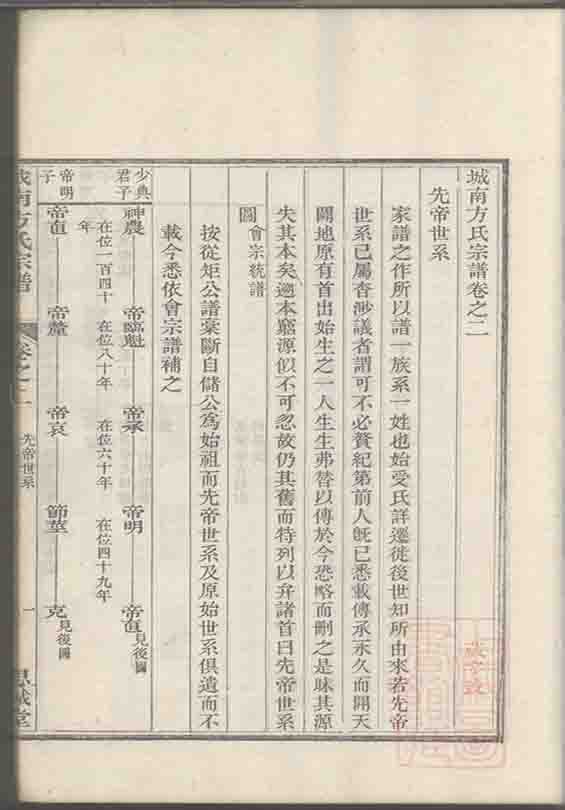 城南方氏宗譜卷之二
先帝世系
家譜之作所以譜一族系一姓也始受氏詳遷徙後世知所由來若先帝
世系已屬杳渺議者謂可不必贅紀第前人旣已悉載傳承永久而開天
闢地原有首出始生之一人生生弗替以傳於今恐略而刪之是昧其源
失其本矣遡本窮源似不可忽故仍其舊而特列以弁諸首曰先帝世系
圖會宗統譜
按從矩公譜棄斷自儲公為始祖而先帝世系及原始世系俱遺而不
載今悉依會宗譜補之
少典君子
神農 帝臨魁 帝承 帝明 帝直見後圖
在位一百四十年 在位八十年 在位六十年 在位四十九年
帝明子
帝直 帝釐 帝哀 節莖 克見後圖
城南方氏宗譜 卷之二 先帝世系 一